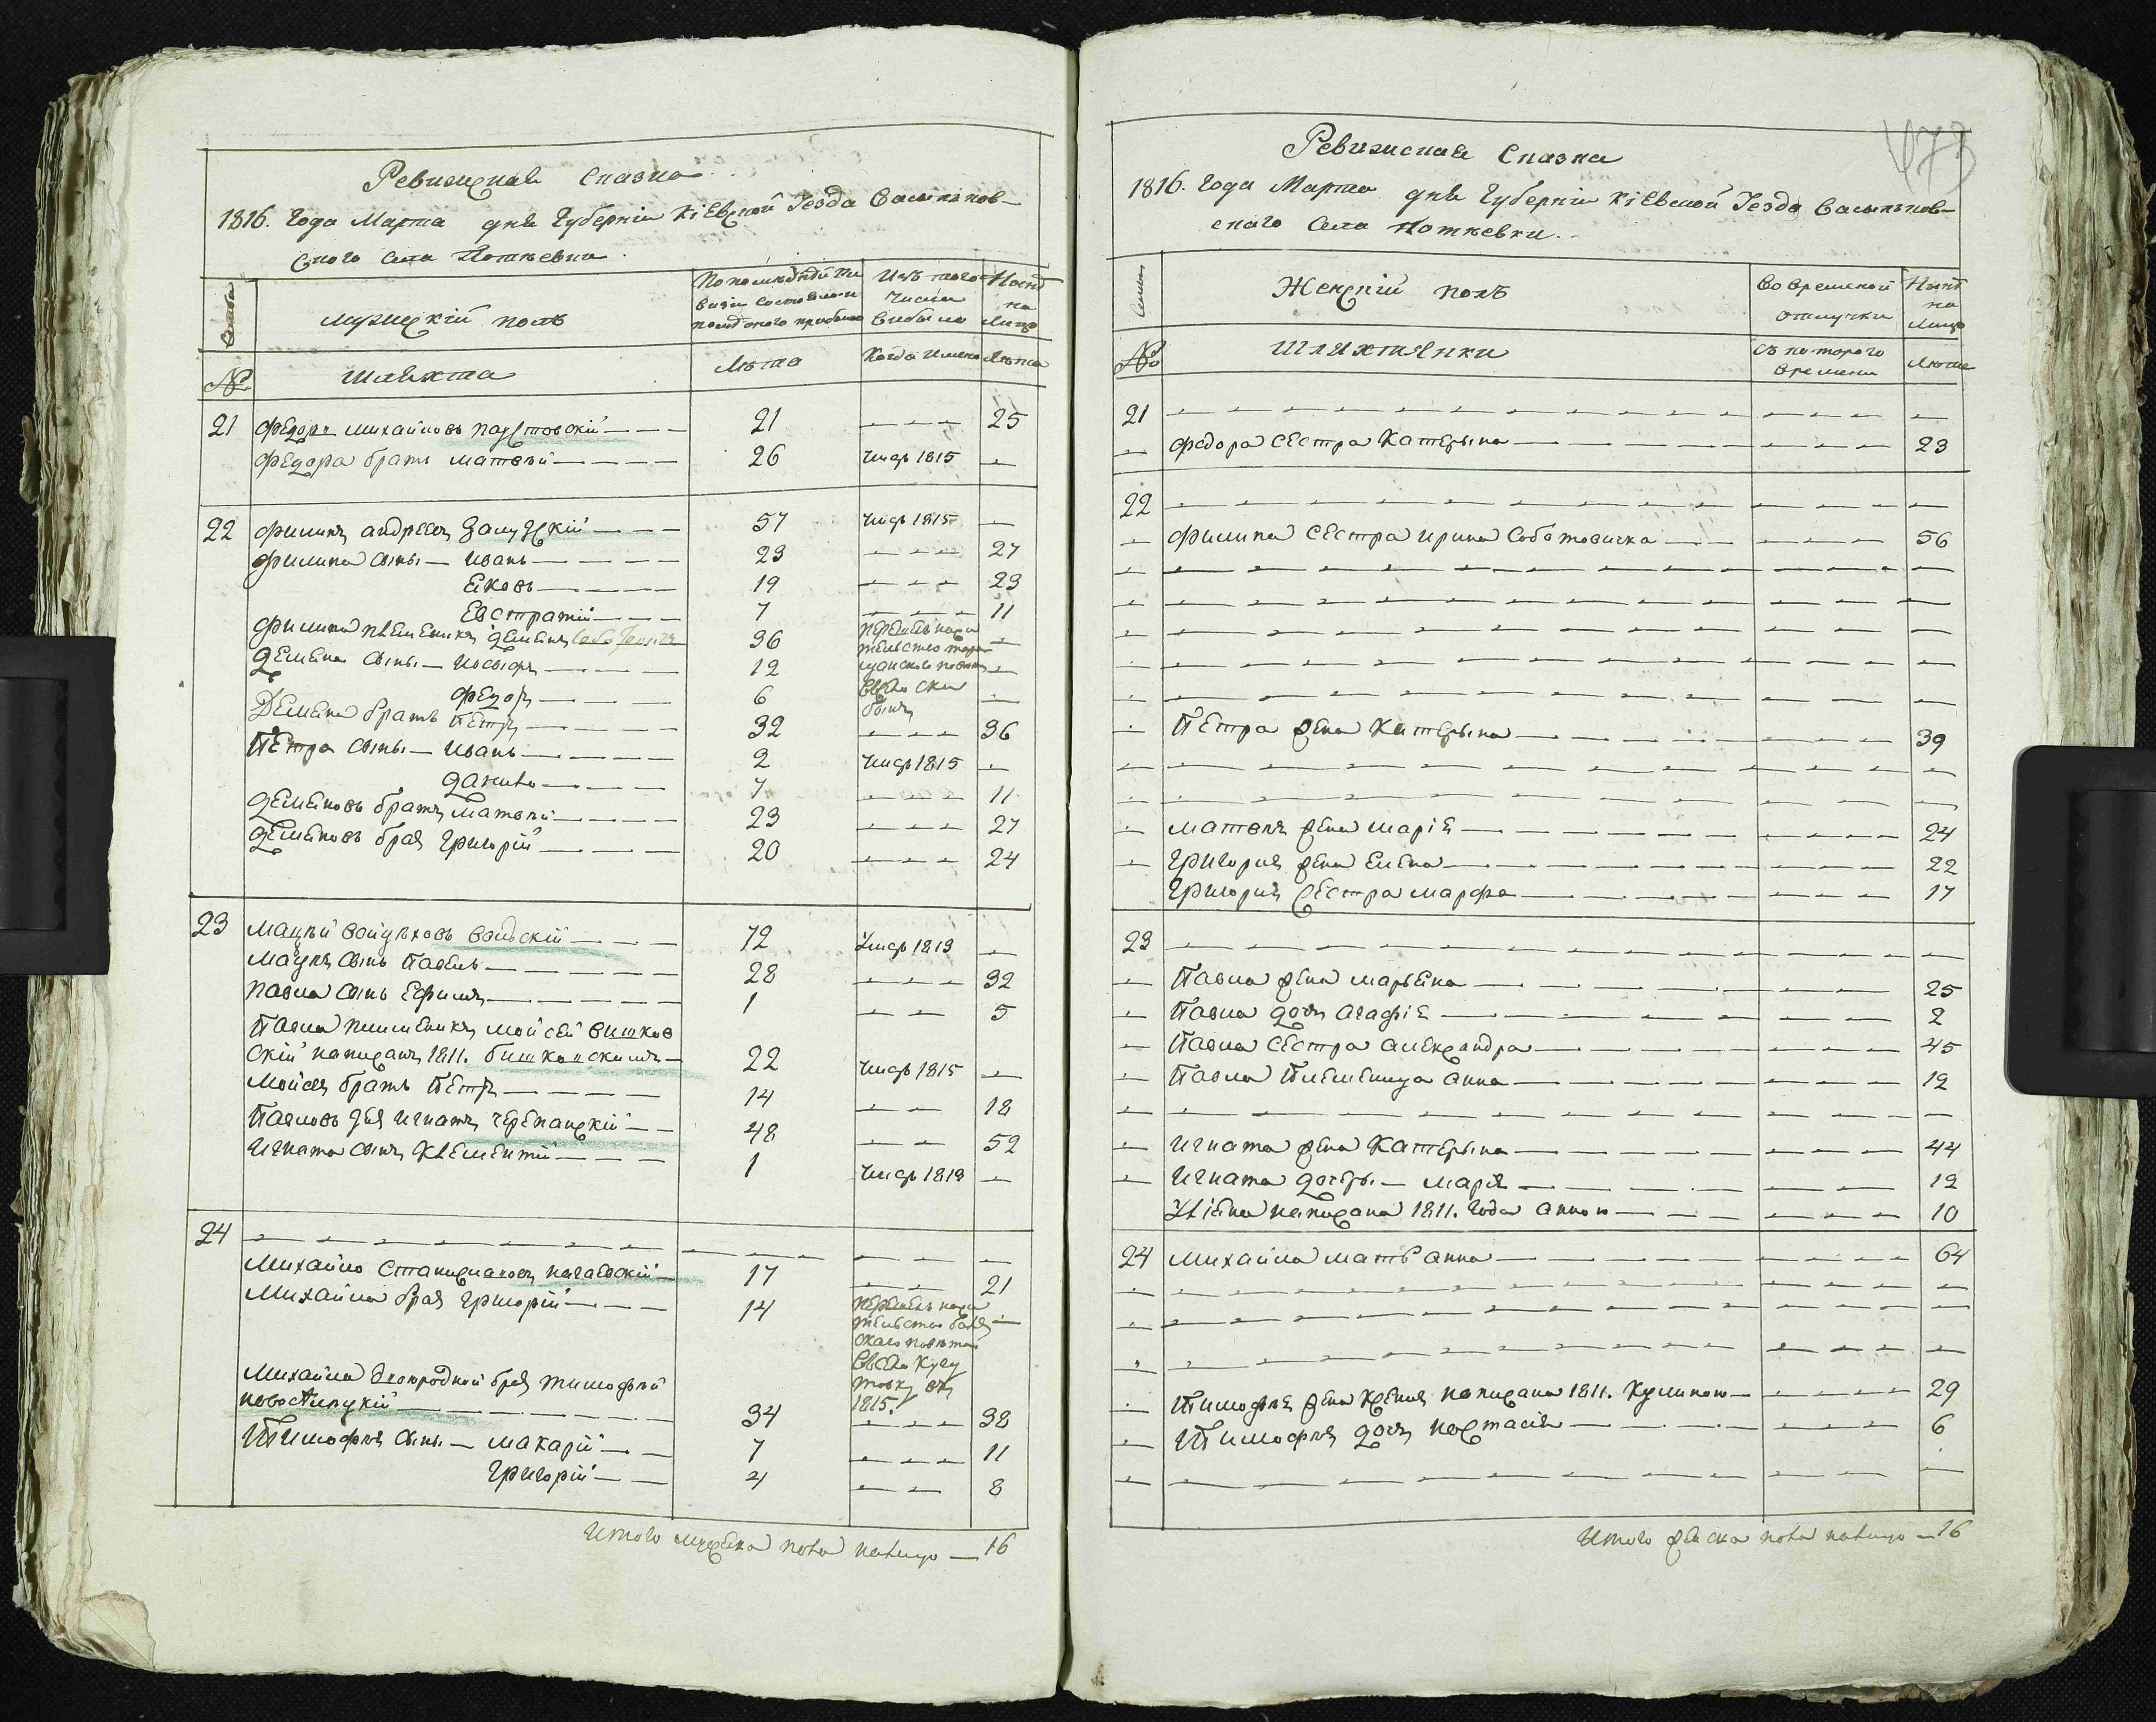 Ревижская Сказка
1816. Года Марта дня Губернiи Кiевской Уезда Васильков-
ского Села Поткевки
Семьи
мужескiй полъ
По последней ре
визiи состояло и
после оного прибыло
Изъ того
числа
выбыло
Ныне
на
лицо
№.
шляхта
Лѣта
Когда имено
Лѣта
21 федоръ михайловъ паустовскiй 21 — — — 25
федора братъ матвѣй 26 умеръ 1815 —
22 филипъ андреевъ 57 умеръ 1815 —
филипа сыны — иванъ 23 — — — 27
яковъ 19 — — — 23
Евстратiй 7 — — — 11
филипа племеникъ демянъ 36 —
перешелъ на жи
тельство
демяна сыны — иосифъ 12 —
федоръ 6 —
Демяна братъ Петръ 32 — — — 36
Петра сыны — иванъ 2 умеръ 1815 —
данило 7 — — — 11
демяновъ братъ матвѣй 23 — — — 27
демяновъ братъ григорiй 20 — — — 24
23 мацѣй войцѣховъ 72 умеръ 1813 —
мацѣя сынъ павелъ 28 — — — 32
павла сынъ ефимъ 1 — — 5
Павла племеникъ мойсей вишков
скiй написанъ 1811. бишковскимъ 22 умеръ 1815 —
мойсея братъ Петръ 14 — — 18
Павловъ дядя игнатъ черепанскiй 48 — — 52
игната сынъ клементiй 1 умеръ 1813 —
24 — — — — — — — — — —
Михайло станиславовъ 17 — — — 21
Михайла братъ григорiй 14 —
перешелъ на жи
тельство
1815.
Михайла двоюродной братъ тимофѣй
34 — — — 38
Тимофѣя сыны — макарiй 7 — — — 11
григорiй 4 — — 8
Итого мужеска пола налицо — 16
473
Ревижская Сказка
1816. Года Марта дня Губернiи Кiевской Уезда Васильков-
ского Села Поткевки.
Семьи
Женскiй полъ
Во временной
отлучки
Ныне
на
лицо
№
шляхтянки
съ которого
времени
лѣта
21 — — — — — — — — — —
— федора сестра Катерына — — — 23
22 — — — — — — — — — —
— филипа сестра ирина — — — 56
— Петра жена Катерына — — — 39
— матвѣя жена марiя — — — 24
— григория жена Елена — — — 22
григория сестра марфа — — — 17
23 — — — — — — — — — —
— Павла жена марьяна — — — 25
— Павла дочь агафiя — — — 2
— Павла сестра александра — — — 45
— Павла племеница анна — — — 12
— игната жена Катерына — — — 44
— игната дочери — марiя — — — 12
улiяна написана 1811. года анною — — — 10
24 михайла мать анна — — — 64
— Тимофѣя жена написана 1811. — — — 29
— Тимофѣя дочь настасiя — — — 6
Итого женска пола налицо — 16